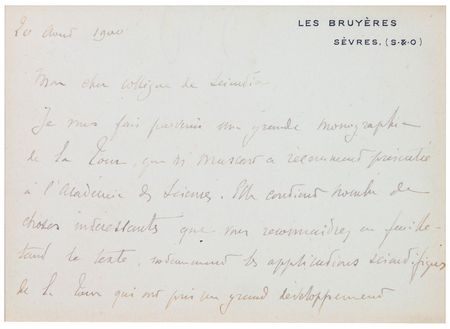 LES BRUYÈRES
SÈVRES, (S.&.O)
20 Août 1900
Mon cher collègue de
Je vous fais parvenir une grande monographie
de la Tour, que Mr Mascart a récemment présentée
à l'Académie des Sciences. Elle contient nombre de
choses intéressantes que vous reconnaîtrez en feuille-
tant le texte, notamment les applications scientifiques
de la Tour qui ont pris un grand développement